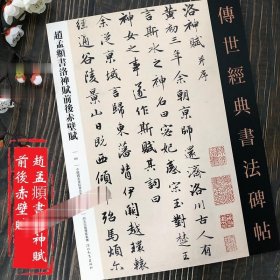 傳世經典書法碑帖
洛神賦 并序
黃初三年余朝京師還濟洛川古人有
言斯水之神名曰宓妃感宋玉對楚王
神女之事遂作斯賦其詞曰
余從京域言歸東藩背伊闕越轘轅
經通谷陵景山日既西傾車殆馬煩爾
趙孟頫書洛神賦前後赤壁賦
趙孟頫書洛神賦
前後赤壁賦